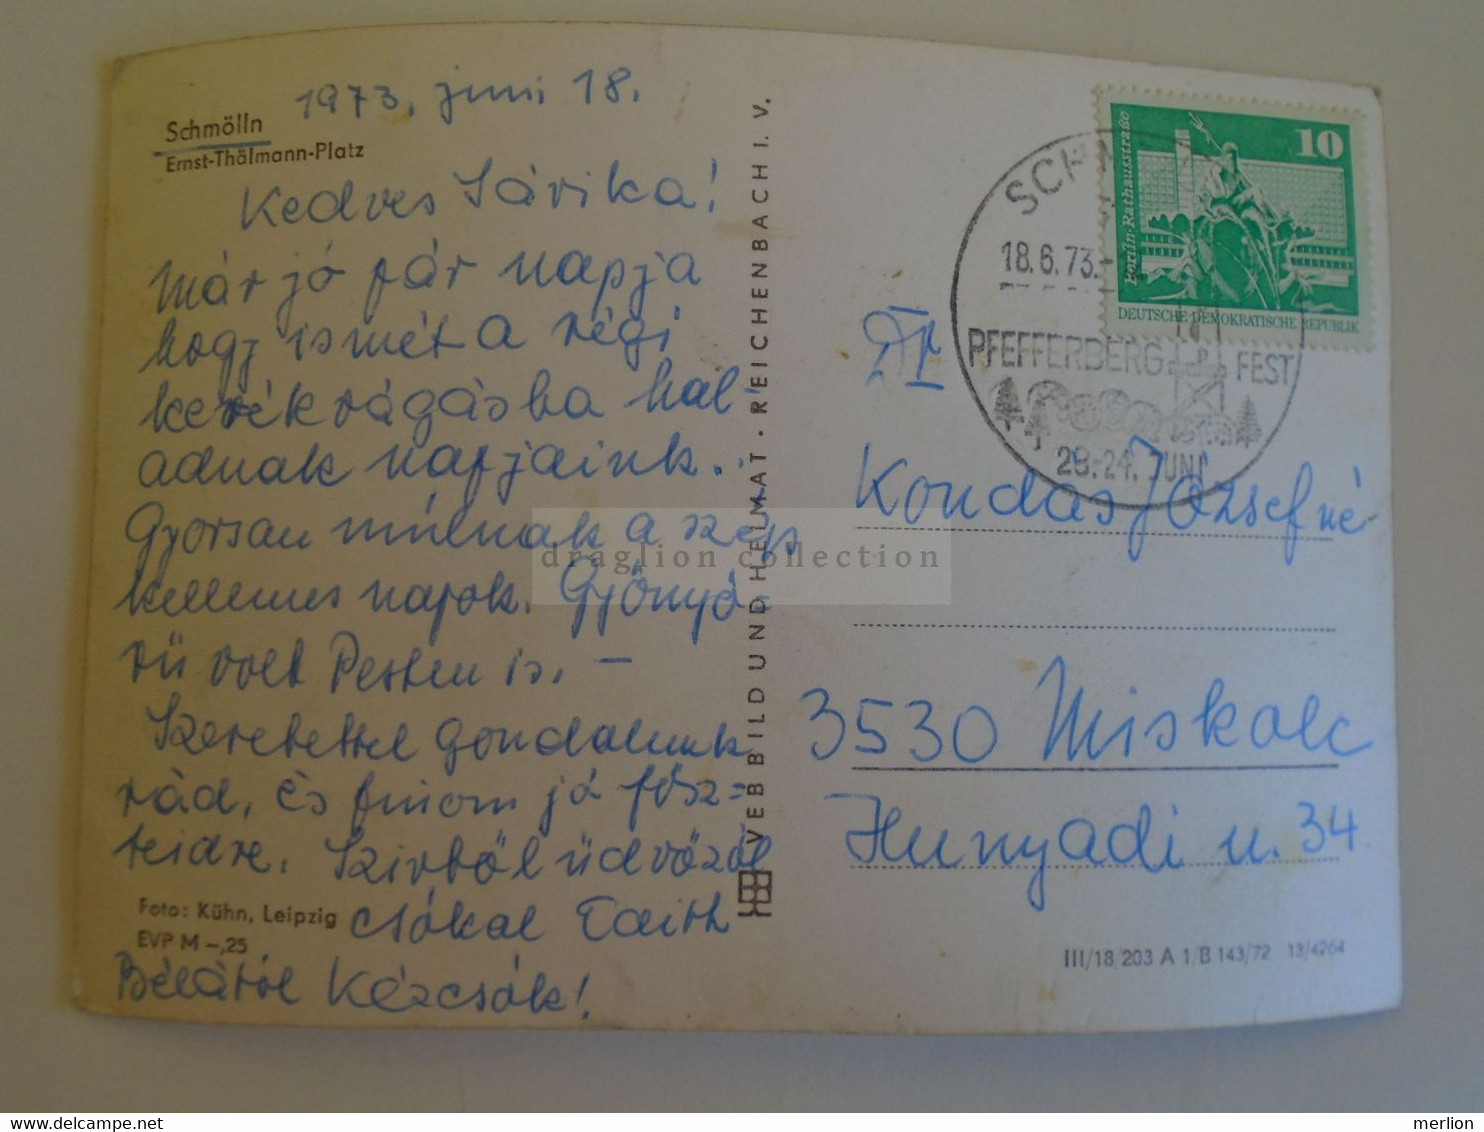 Schmölln
Ernst-Thälmann-Platz
1973. juni 18.
Kedves Sárika!
Már jó pár napja
hogy ismét a régi
kerékvágásba hal-
adnak napjaink..
Gyorsan múlnak a szép
kellemes napok. Gyönyö-
rü volt Pesten is. –
Szeretettel gondolunk
rád, és finom jó fősz=
teidre. Szivből üdvözöl
csókal Edith
Bélától Kézcsók!
Foto: Kühn, Leipzig
EVP M –,25
VEB BILD UND HEIMAT · REICHENBACH I. V.
10
Berlin-Rathausstraße
DEUTSCHE DEMOKRATISCHE REPUBLIK
18.6.73.-
PFEFFERBERG FEST
23.-24. JUNI
Dr
Kondás Józsefné
3530 Miskolc
Hunyadi u. 34
III/18 203 A 1/B 143/72 13/4264
draglion collection
delcampe.net
merlion